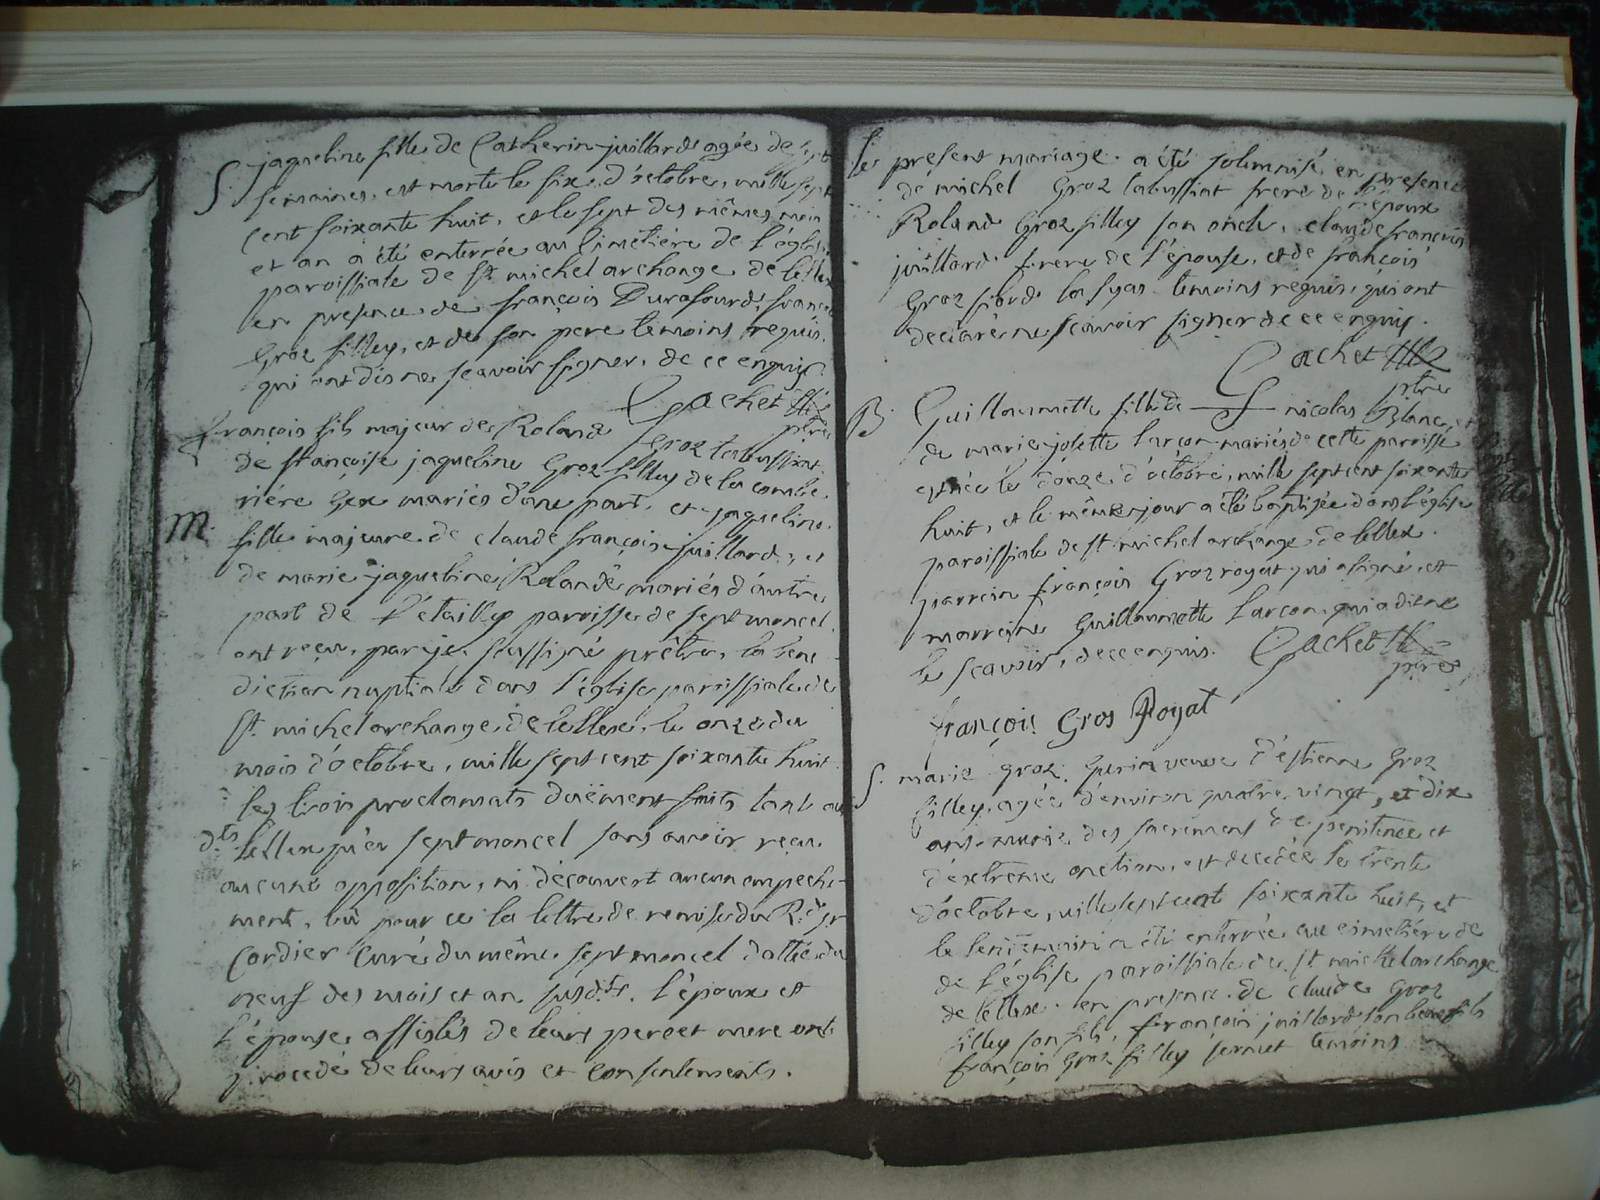 S. jaqueline fille de Catherin juillard agée de sept
semaines, est morte le six d'octobre, mille sept
cent soixante huit, et le sept des mêmes mois
et an a été enterrée au cimétiére de l'église
paroissiale de st michel archange de lellex
en presence de françois Durafourd, françois
Groz filley, et de son pere temoins requis
qui ont dis ne scavoir signer, de ce enquis.
Gachet
ptre
françois fils majeur de Roland Groz labussint
de françoise jaqueline Groz filley de la combe
M. riére Gex mariés d'une part, et jaqueline
fille majeure de claude françois juillard, et
de marie jaqueline Roland mariés d'autre
part de l'étailly parroisse de septmoncel
ont reçu, par je soussigné prêtre, la bene
diction nuptiale dans l'église parrissiale de
St. michel archange de lellex, le onze du
mois d'octobre, mille sept cent soixante huit
les trois proclamats duëment faits tant au
dts lellex qu'en septmoncel sans avoir reçu
aucune opposition, ni découvert aucun empeche-
ment, vu pour ce la lettre de remise du Rd. sr
Cordier Curé du même septmoncel dattée du
neuf des mois et an susdts. l'époux et
l'épouse assistés de leurs pere et mere ont
procedé de leurs avis et consentements.
le present mariage a été solemnisé en presence
de michel Groz labussint frere de l'époux
Roland Groz filley son oncle, claude françois
juillard frere de l'épouse, et de françois
Groz fiord temoins requis, qui ont
declaré ne scavoir signer de ce enquis.
Gachet
ptre
B. Guillaumette fille de nicolas Blanc, et
de marie josette larçon mariés de cette parroisse
est née le douze d'octobre, mille sept cent soixante
huit, et le même jour a été baptisée dans l'église
paroissiale de st michel archange de lellex.
parrein françois Groz royat qui a signé, et
marreine Guillaumette larçon qui a dit ne
le scavoir, de ce enquis. Gachet
ptre
françois Gros Royat
S. marie Groz Gurin veuve d'estienne Groz
filley, agée d'environ quatre vingt, et dix
ans munie des sacrement de penitence et
d'extreme onction, est decedée le trente
d'octobre, mille sept cent soixante huit, et
le lendemain a été enterrée au cimetiere de
de l'église paroissiale de st michel archange
de lellex. en presence de claude Groz
filley son fils, françois juillard son beau fils
françois Groz filley temoins